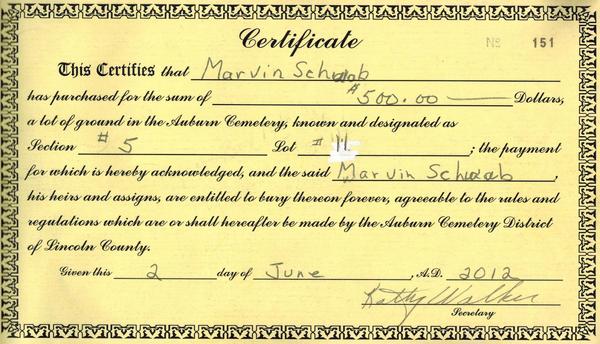 Certificate
Nº 151
This Certifies that Marvin Schwab
has purchased for the sum of $500.00 — Dollars,
a lot of ground in the Auburn Cemetery, known and designated as
Section #5 Lot # 11 ; the payment
for which is hereby acknowledged, and the said Marvin Schwab,
his heirs and assigns, are entitled to bury thereon forever, agreeable to the rules and
regulations which are or shall hereafter be made by the Auburn Cemetery District
of Lincoln County.
Given this 2 day of June, A.D. 2012
Kathy Walker
Secretary